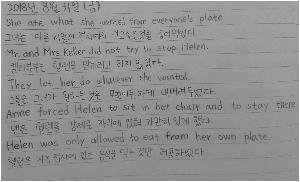 2018년 8월 31일 (금)
She ate what she wanted from everyone's plate
그녀는 다른 사람의 접시에서 그녀가 원하는 것을 먹었다.
Mr. and Mrs. Keller did not try to stop Helen.
켈러부부는 헬렌을 말리려고 하지 않았다.
They let her do whatever she wanted.
그들은 그녀가 원하는 것은 무엇이든 하게 내버려두었다.
Anne forced Helen to sit in her chair and to stay there
앤은 헬렌을 강제로 자리에 앉혀 가만히 있게 했다.
Helen was only allowed to eat from her own plate.
헬렌은 자기 접시에 있는 음식을 먹는 것만 허용되었다.